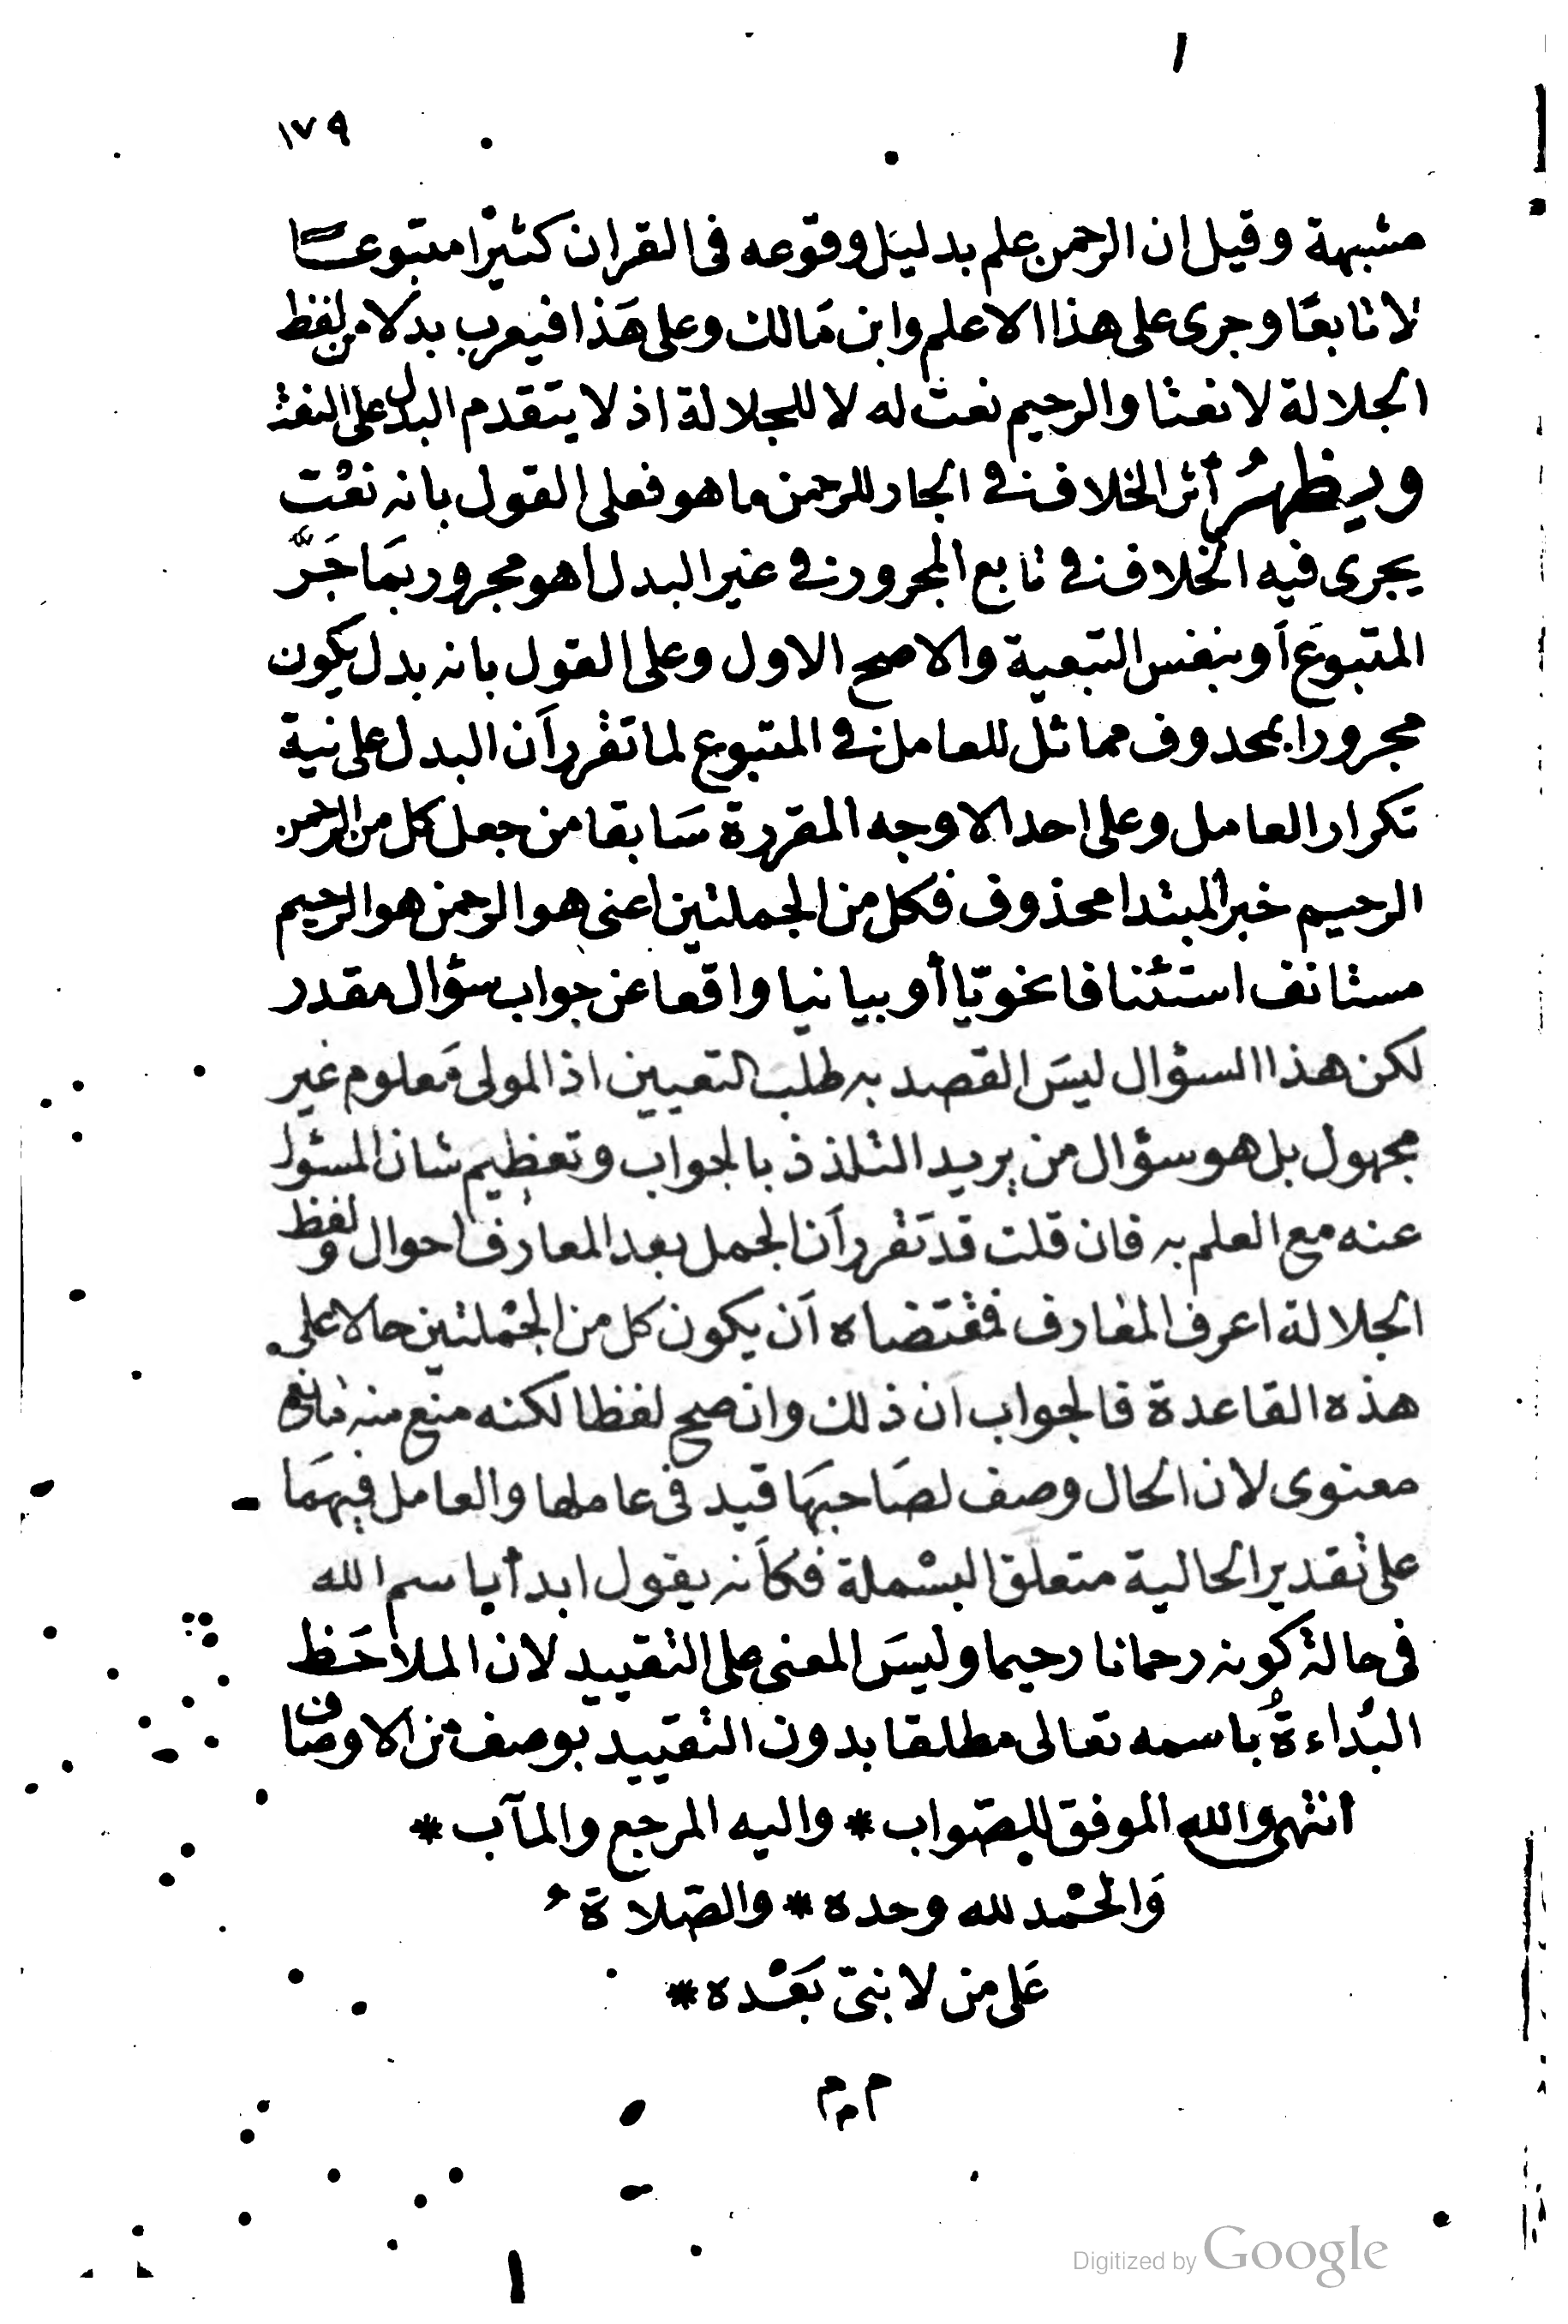 ١٧٩
مشبهة وقيل ان الرحمن علم بدليل وقوعه فى القران كثيرا متبوعًا
لا تابعًا وجرى على هذا الاعلم وابن مَالك وعلى هَذا فيعرب بدلا من لفظ
الجلالة لا نعتا والرحيم نعت له لا للجلالة اذ لا يتقدم البدل على النعت
ويظهرُ أثر الخلاف فى الجار للرحمن ما هو فعلى القول بانه نعْت
يجرى فيه الخلاف فى تابع المجرور فى غير البدل اهو مجرور بمَا جَرَّ
المتبوعَ أو بنفس التبعية والاصح الاول وعلى القول بانه بدل يكون
مجرورا بمحذوف مماثل للعامل فى المتبوع لما تقرر أن البدل على نية
تكرار العامل وعلى احد الاوجه المقررة سَابقا من جعل كل من الرحمن
الرحيم خبر المبتدا محذوف فكل من الجملتين اعنى هو الرحمن هو الرحيم
مستانف استئنافا نحويّا أو بيانيا واقعا عن جواب سؤال مقدر
لكن هذا السؤال ليسَ القصد به طلبَ التعيين اذ المولى مَعلوم غير
مجهول بل هو سؤال من يريد التلذذ بالجواب وتعظيم شان المسئول
عنه مع العلم به فان قلت قد تَقرر أن الجمل بعد المعارف احوال ولفظ
الجلالة اعرف المعارف فمقتضاه أن يكون كل من الجمْلتين حالا على
هذه القاعدة فالجواب ان ذلك وان صح لفظا لكنه منع منه مانع
معنوى لان الحال وصف لصَاحبهَا قيد فى عاملها والعامل فيهمَا
على تقدير الحالية متعلق البسْملة فكأنه يقول ابدأ باسم الله
فى حالة كونه رحمانا رحيما وليسَ المعنى على التقييد لان الملاحَظ
البُداءةُ باسمه تعالى مطلقا بدون التقييد بوصف من الاوصاف
انتهى والله الموفق للصّواب * واليه المرجع والمآب *
وَالحمْد لله وحده * والصّلاة
عَلى من لا نبىّ بَعْده *
م م م
Digitized by Google